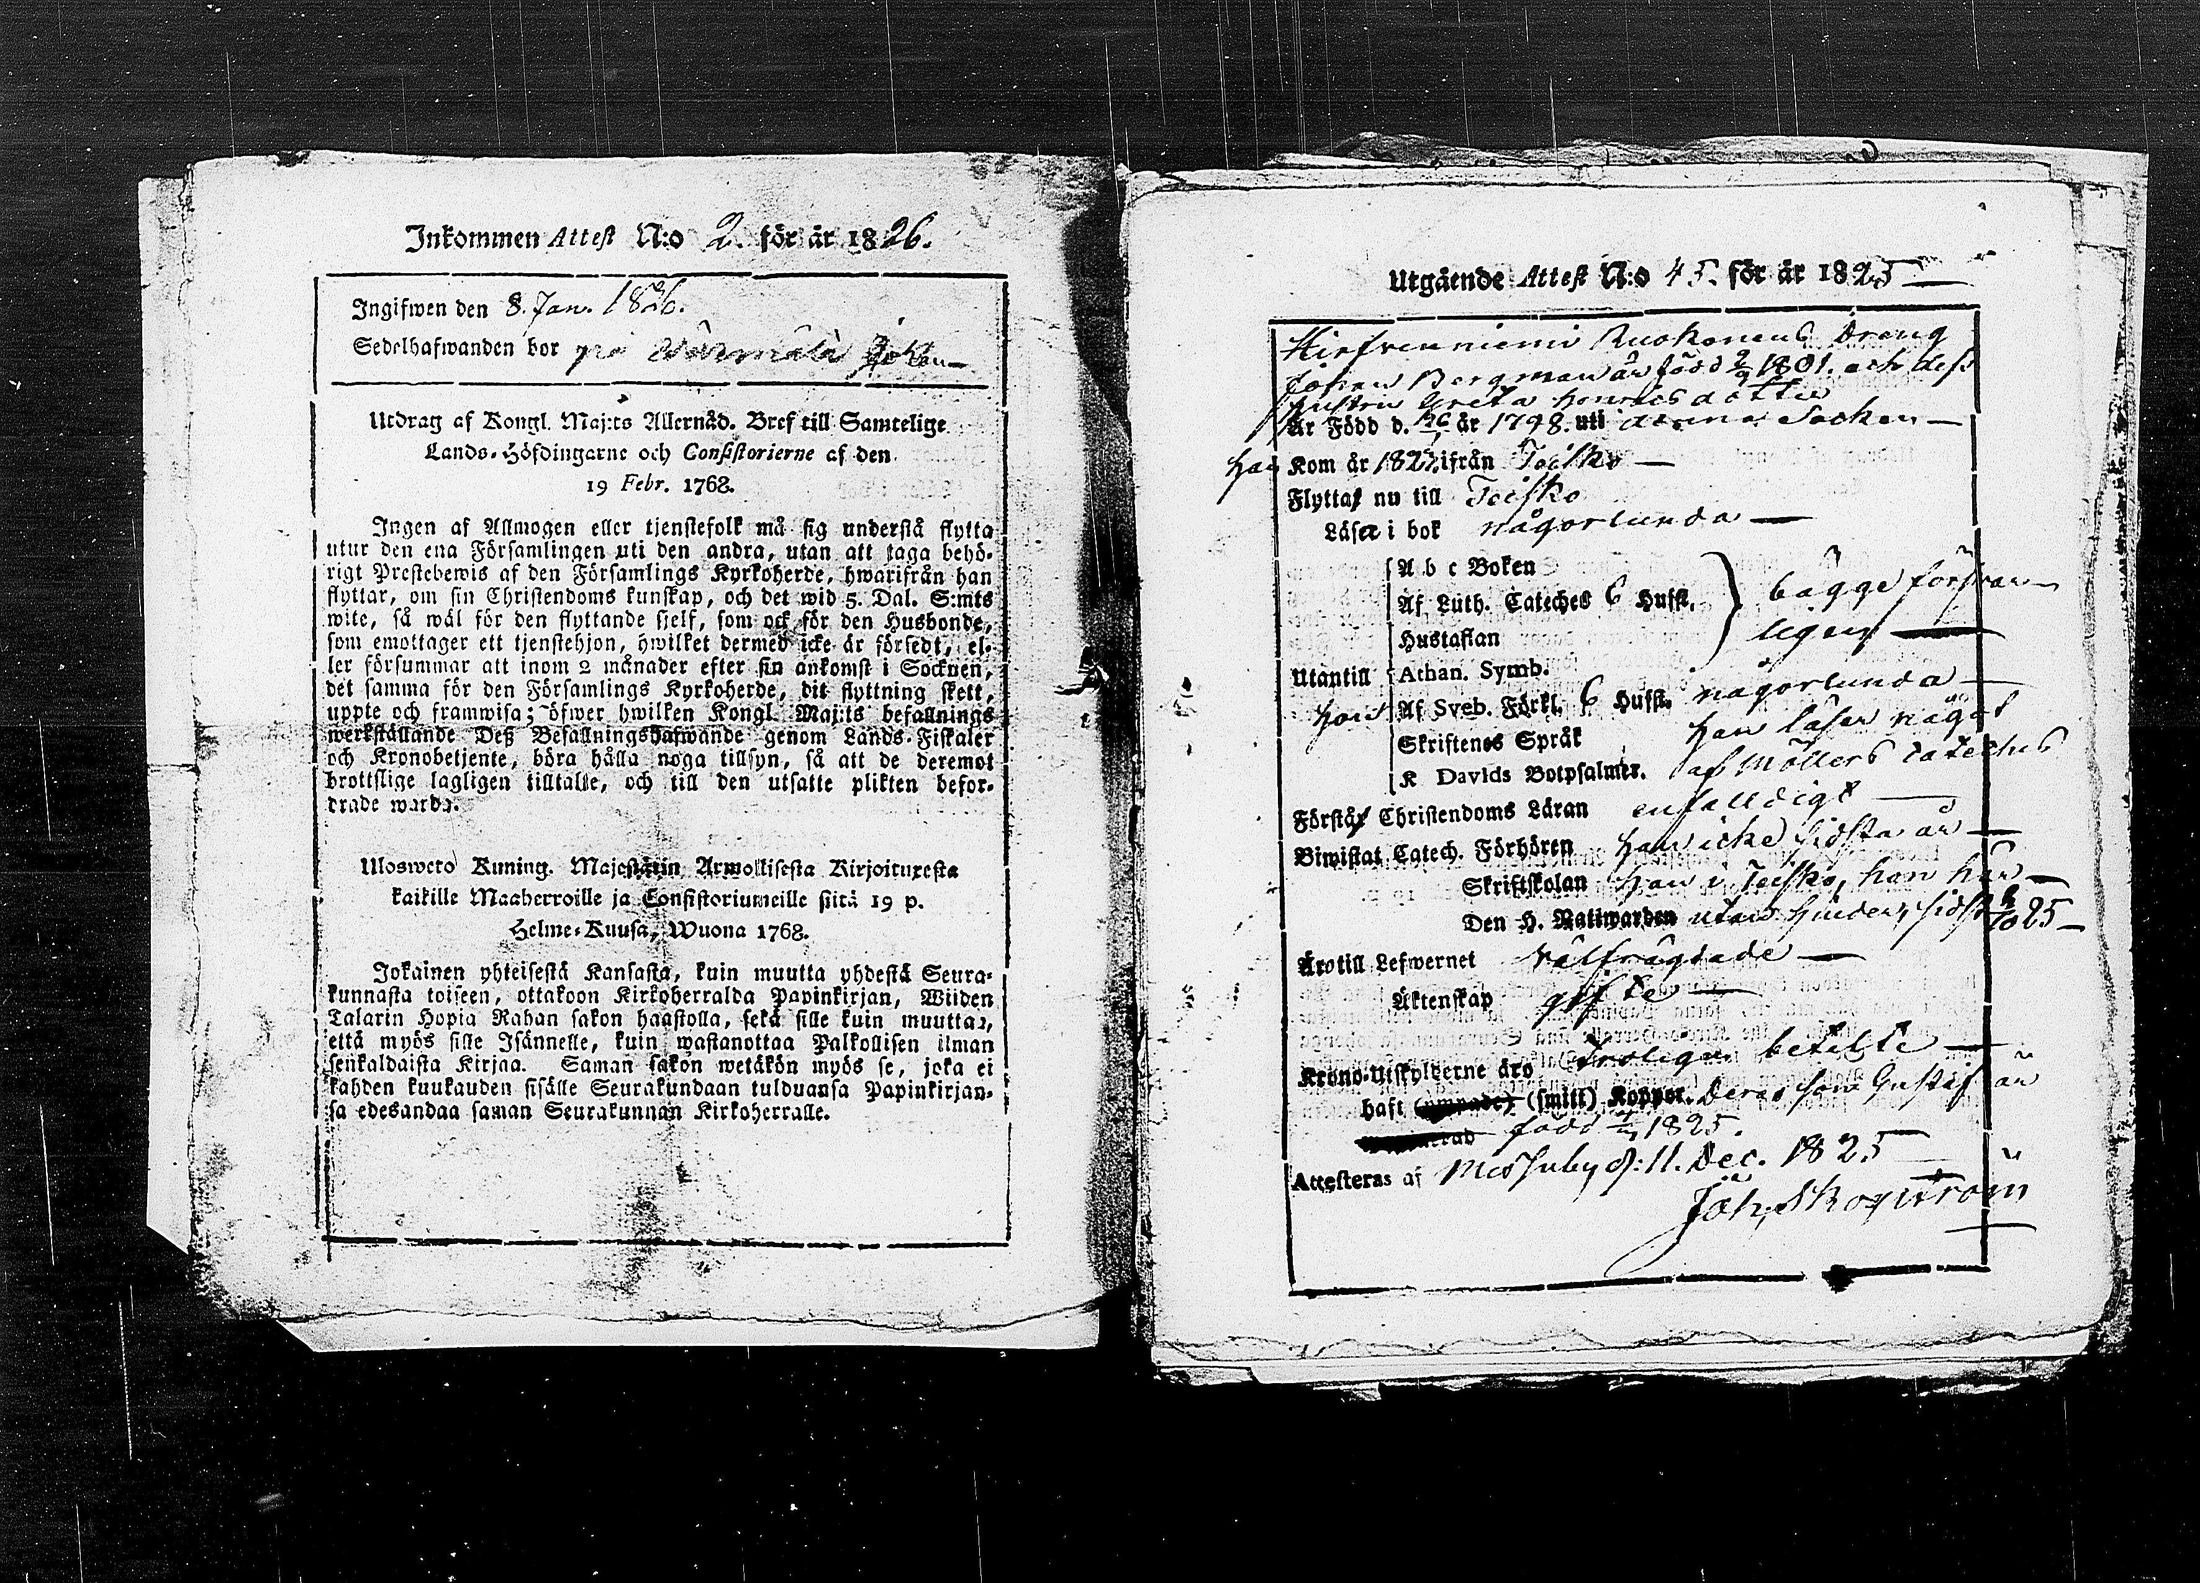 Inkommen Attest N:o 2. för år 1826.
Ingifwen den 8. Jan. 1826.
Sedelhafwanden bor på Wärmälä
Utdrag af Kongl. Maj:ts Allernåd. Bref till Samtelige
Lands-Höfdingarne och Consistorierne af den
19 Febr. 1768.
Ingen af Allmogen eller tjenstefolk må sig understå flytta
utur den ena Församlingen uti den andra, utan att taga behö-
rigt Prestebewis af den Församlings Kyrkoherde, hwarifrån han
flyttar, om sin Christendoms kunskap, och det wid 5. Dal. S:mts
wite, så wäl för den flyttande sjelf, som ock för den Husbonde,
som emottager ett tjenstehjon, hwilket dermed icke är försedt, el-
ler försummar att inom 2 månader efter sin ankomst i Socknen,
det samma för den Församlings Kyrkoherde, dit flyttning skett,
uppte och framwisa; öfwer hwilken Kongl. Maj:ts befallnings
werkställande Deß Befallningshafwande genom Lands-Fiskaler
och Kronobetjente, böra hålla noga tillsyn, så att de deremot
brottslige lagligen tilltalte, och till den utsatte plikten befor-
drade warda.
Ulosweto Kuning. Majestätin Armollisesta Kirjoituxesta
kaikille Maaherroille ja Consistoriumeille siitä 19 p.
Helme-Kuusa, Wuona 1768.
Jokainen yhteisestä Kansasta, kuin muutta yhdestä Seura-
kunnasta toiseen, ottakoon Kirkoherralda Papinkirjan, Wiiden
Talarin Hopia Rahan sakon haastolla, sekä sille kuin muuttaa,
että myös sille Isännelle, kuin wastanottaa Palkollisen ilman
senkaldaista Kirjaa. Saman sakon wetäkön myös se, joka ei
kahden kuukauden sisälle Seurakundaan tulduansa Papinkirjan-
sa edesandaa saman Seurakunnan Kirkoherralle.
Utgående Attest N:o 45. för år 1825
Hirfvenniemi Ruokonens Dreng
Johan Bergman är född 2/9 1801. och dess
hustru Greta Henricsdotter
Är Född d. år 1798. uti denna Socken
han Kom år ifrån Teisko
Flytta nu till Teisko
Läsa i bok någorlunda
A b c Boken
Af Luth. Cateches 6 Hufst. bägge försvar
Hustaflan ligen
Utantill Athan. Symb.
hon Af Sveb. Förkl. 6 Hufst. någorlunda
Skriftenes Språk han läser något
K Davids Botpsalmer. af Möllers cateches
Förstå Christendoms Läran enfalldigt
Biwistat Catech. Förhören han icke sidsta år
Skriftskolan han i Teisko, hon här
Den H. Nattwarden utan hinder, sidst 25
Äro till Lefwernet välfrägdade
Äktenskap gifte
Krono-Utskylderne äro troligen betalte
haft (smitt) Koppor. Deras son Gustaf är
född 1825.
Attesteras af Messuby d: 11. Dec. 1825
Joh. Skogström